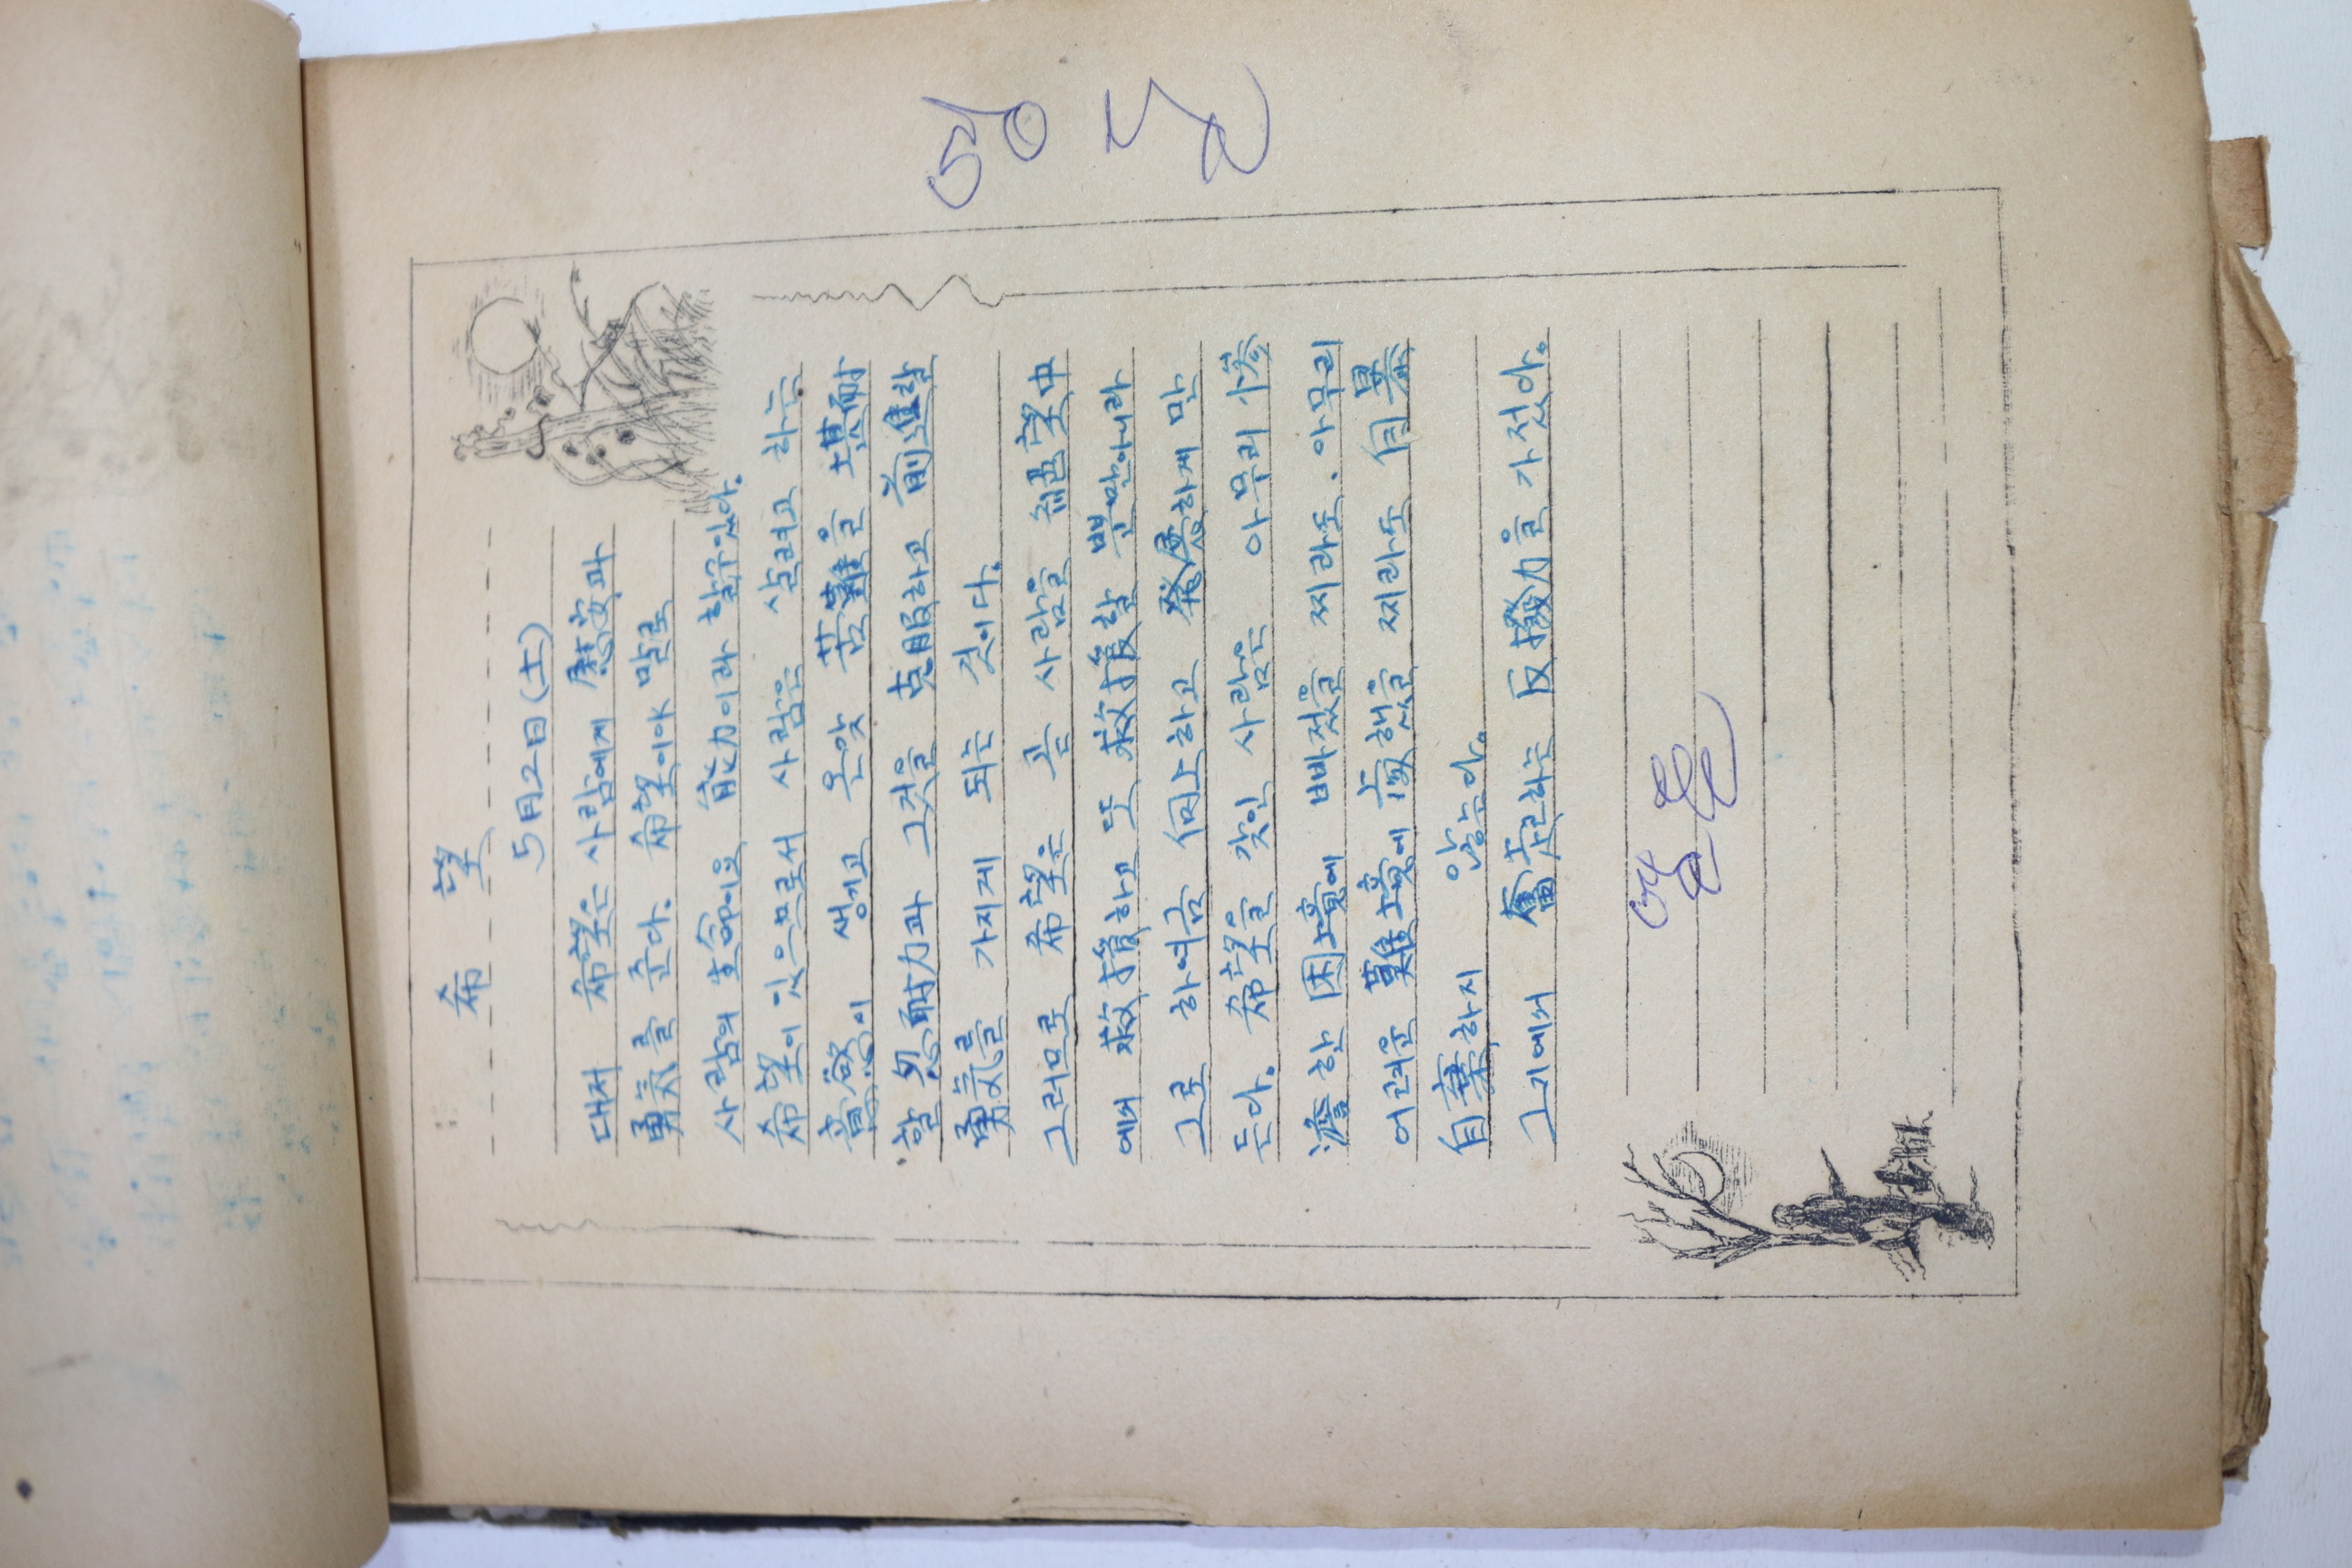 希 望
5月2日(土)
대저 希望은 사람에게 慰安과
勇気를 준다. 希望이야 말로
사람의 生命이요 能力이라 할수있다.
希望이 있으므로서 사람은 살려고 하는
意慾이 생기고 온갖 苦難을 堪耐
할 忍耐力과 그것을 克服하고 前進할
勇気를 가지게 되는 것이다.
그러므로 希望은 곧 사람을 絶望中
에서 救援하고 또 救援할 뿐만아니라
그로 하여금 向上하고 發展하게 만
든다. 希望을 갖인 사람은 아무리 惨
澹한 困境에 빠젔을 찌라도. 아무리
어려운 難境에 處했을 찌라도 自暴
自棄하지 않는다.
그기에서 奮鬪하는 反撥力을 가젔다.